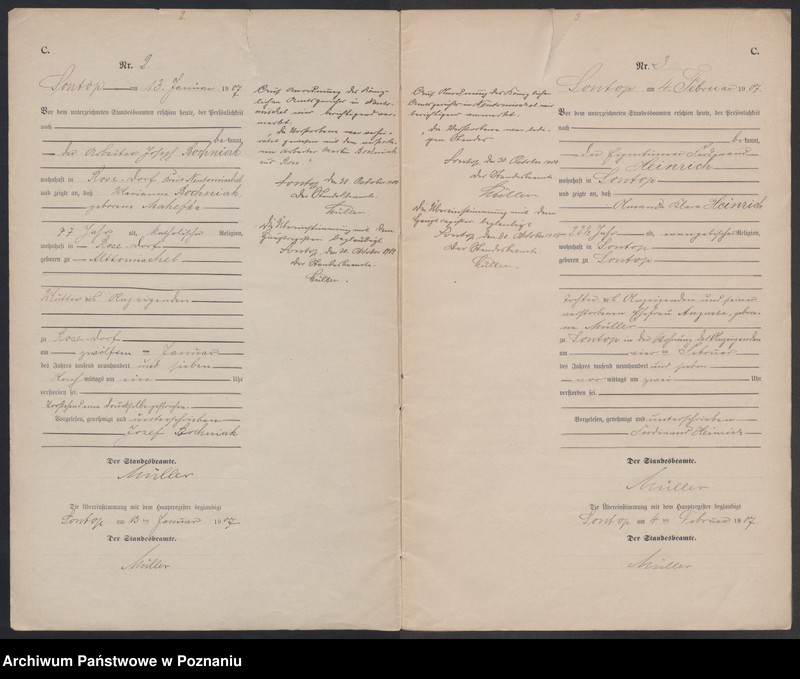 2
C.
Nr. 2.
Sontop am 13. Januar 1907
Vor dem unterzeichneten Standesbeamten erschien heute, der Persönlichkeit
nach
bekannt,
der Arbeiter Joseph Bochniak
wohnhaft in Rose-Dorf Kreis Neutomischel
und zeigte an, daß Marianna Bochniak
geborene
77 Jahr alt, katholischer Religion,
wohnhaft in Rose Dorf
geboren zu Alttomischel
Mutter des Anzeigenden
zu Rose-Dorf
am zwölften Januar
des Jahres tausend neunhundert und sieben
Nachmittags um ein Uhr
verstorben sei.
Vorstehend Druckfilbe gestrichen.
Vorgelesen, genehmigt und unterschrieben
Josef Bochniak
Der Standesbeamte.
Müller
Die Übereinstimmung mit dem Hauptregister beglaubigt
Sontop am 13 ten Januar 1907
Der Standesbeamte.
Müller
Auf Anordnung des König-
lichen Amtsgerichts in Neuto-
mischel wird berichtigend ver-
merkt:
"Die Verstorbene war
mit dem
Arbeiter Martin Bochniak
aus Rose."
Sontop, den 30. Oktober
Der Standesbeamte.
Müller
Die Übereinstimmung mit dem
Hauptregister beglaubigt
Sontop, den 30. Oktober
Der Standesbeamte
Müller.
3
C.
Nr. 3
Sontop am 4. Februar 1907
Vor dem unterzeichneten Standesbeamten erschien heute, der Persönlichkeit
nach
bekannt,
der Eigentümer Ferdinand
Heinrich
wohnhaft in Sontop
und zeigte an, daß
Amanda Klara Heinrich
22½ Jahr alt, evangelischer Religion,
wohnhaft in Sontop
geboren zu Sontop
Tochter des Anzeigenden und seiner
verstorbenen Ehefrau Auguste, gebore-
ne Müller
zu Sontop in der Wohnung des Anzeigenden
am vierten Februar
des Jahres tausend neunhundert und sieben
vormittags um zwei Uhr
verstorben sei.
Vorgelesen, genehmigt und unterschrieben
Ferdinand Heinrich
Der Standesbeamte.
Müller
Die Übereinstimmung mit dem Hauptregister beglaubigt
Sontop am 4 ten Februar 1907
Der Standesbeamte.
Müller
Auf Anordnung des Königlichen
Amtsgerichts in Neutomischel wird
berichtigend vermerkt:
"Die Verstorbene war ledi-
gen Standes
Sontop, den 30 Oktober
Der Standesbeamte.
Müller
Die Übereinstimmung mit dem
Hauptregister beglaubigt
Sontop, den 30. Oktober
Der Standesbeamte.
Müller.
Archiwum Państwowe w Poznaniu